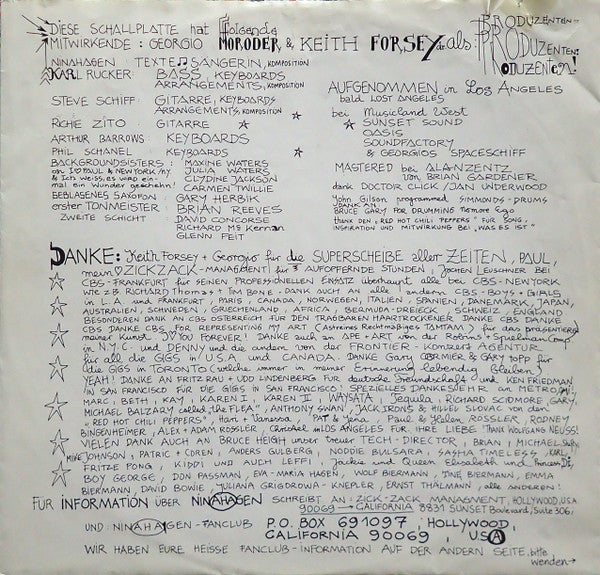 DIESE SCHALLPLATTE hat folgende
MITWIRKENDE: GEORGIO MORODER & KEITH FORSEY als PRODUZENTEN
PRODUZENTEN:
PRODUZENTEN!
NINAHAGEN : TEXTE SÄNGERIN, KOMPOSITION
KARL RUCKER BASS, KEYBOARDS
ARRANGEMENTS, KOMPOSITION
STEVE SCHIFF: GITARRE, KEYBOARDS
ARRANGEMENTS, KOMPOSITION
RICHIE ZITO: GITARRE
ARTHUR BARROWS: KEYBOARDS
PHIL SCHANEL KEYBOARDS
BACKGROUNDSISTERS: MAXINE WATERS
on I ♡ PAUL & NEW YORK/NY JULIA WATERS
& Ich weiss, es wird ein- CLYDINE JACKSON
mal ein Wunder geschehn! CARMEN TWILLIE
GEBLASENES SAXOFON: GARY HERBIK
erster TONMEISTER: BRIAN REEVES
ZWEITE SCHICHT: DAVID CONCORSE
RICHARD MS Kernan
GLENN FEIT
AUFGENOMMEN in LOS ANGELES
bald LOST ANGELES
bei Musicland West
SUNSET SOUND
OASIS
SOUNDFACTORY
& GEORGIOS SPACESCHIFF
MASTERED bei ALAN ZENTZ
von BRIAN GARDENER
dank DOCTOR CLICK/JAN UNDERWOOD
John Gilson programmed SIMMONDS-DRUMS
DANK AN
BRUCE GARY FOR DRUMMING Zarathustra Ego
THANK DEN „RED HOT CHILI PEPPERS" FÜR SONG,
INSPIRATION UND MITWIRKUNG BEI „WAS ES IST"
DANKE: Keith FORSEY + Georgio für die SUPERSCHEIBE aller ZEITEN, PAUL,
mein ♡ ZICKZACK-MANAGMENT für 3 AUFOPFERNDE STUNDEN, JOCHEN LEUSCHNER BEI
CBS-FRANKFURT für SEINEN PROFESSIONELLEN EINSATZ überhaupt alle bei CBS-NEWYORK
wie z.B. RICHARD Thomas + TIM BONE. DANK AUCH AN all's anders CBS-BOYS+GIRLS
in L.A. und FRANKFURT, PARIS, CANADA, NORWEGEN, ITALIEN, SPANIEN, DANEMARK, JAPAN,
AUSTRALIEN, SCHWEDEN, GRIECHENLAND, AFRICA, BERMUDA-DREIECK, SCHWEIZ, ENGLAND
BESONDEREN DANK AN CBS ÖSTERREICH FÜR DEN TRAGBAREN HAARTROCKENER DANKE CBS DANKE
CBS DANKE CBS FOR REPRESENTING MY ART (Astreines Rechtmäßiges TAMTAM) für das präsentieren
meiner Kunst ♡ YOU FOREVER! DANKE auch an APE + ART von der Robins + Spielman Comp.
in N.Y.C und DENNY und die andern von der FRONTIER-KONZERT AGENTUR
für all die GIGS in USA und CANADA. DANKE Gary CORMIER & GARY TOPP für
die GIGS in TORONTO (welche immer in meiner Erinnerung lebendig bleiben)
YEAH! DANKE AN FRITZ RAU + UDO LINDENBERG für deutsche Freundschaft und KEN FRIEDMAN
IN SAN FRANCISCO FÜR DIE GIGS IN SAN FRANCISCO! SPEZIELLES DANKESEHR an METRO,
MARC, BETH, KAY, KAREN I, KAREN II, WAYSATA, Tequila, RICHARD SCIDMORE, GARY,
MICHAEL BALZARY called „the FLEA", ANTHONY SWAN, JACK IRONS & HILLEL SLOVAC von den
„RED HOT CHILI PEPPERS", Herr Vanessa, PAT & Yana, Paul & Helen ROSSLER, RODNEY
BINGENHEIMER, ALEX + ADAM ROSSLER, Christoph in LOS ANGELES FÜR IHRE LIEBE THANK WOLFGANG NEUSS!
VIELEN DANK AUCH AN BRUCE HEIGH unser treuer TECH-DIRECTOR, BRIAN, MICHAEL
MIKE JOHNSON, PATRIC + COREN, ANDERS GULBERG, NODDIE BULSARA, SASHA TIMELESS, KARL,
FRITZE PONG, KIDDI UND AUCH LEFFI, Jackie und Queen Elisabeth und Princess Di,
BOY GEORGE, DON PASSMAN, EVA-MARIA HAGEN, WOLF BIERMANN, TINE BIERMANN, EMMA
BIERMANN, DAVID BOWIE, JULIANA GRIGOROWA-KNEPLER, ERNST THÄLMANN, alle anderen!
FÜR INFORMATION ÜBER NINAHAGEN SCHREIBT AN: ZICK-ZACK MANAGMENT, HOLLYWOOD, USA
90069 → CALIFORNIA 8831 SUNSET Boulevard, Suite 306,
UND: NINAHAGEN-FANCLUB P.O. BOX 691097, HOLLYWOOD,
CALIFORNIA 90069, USA
WIR HABEN EURE HEISSE FANCLUB-INFORMATION AUF DER ANDERN SEITE. bitte
wenden→